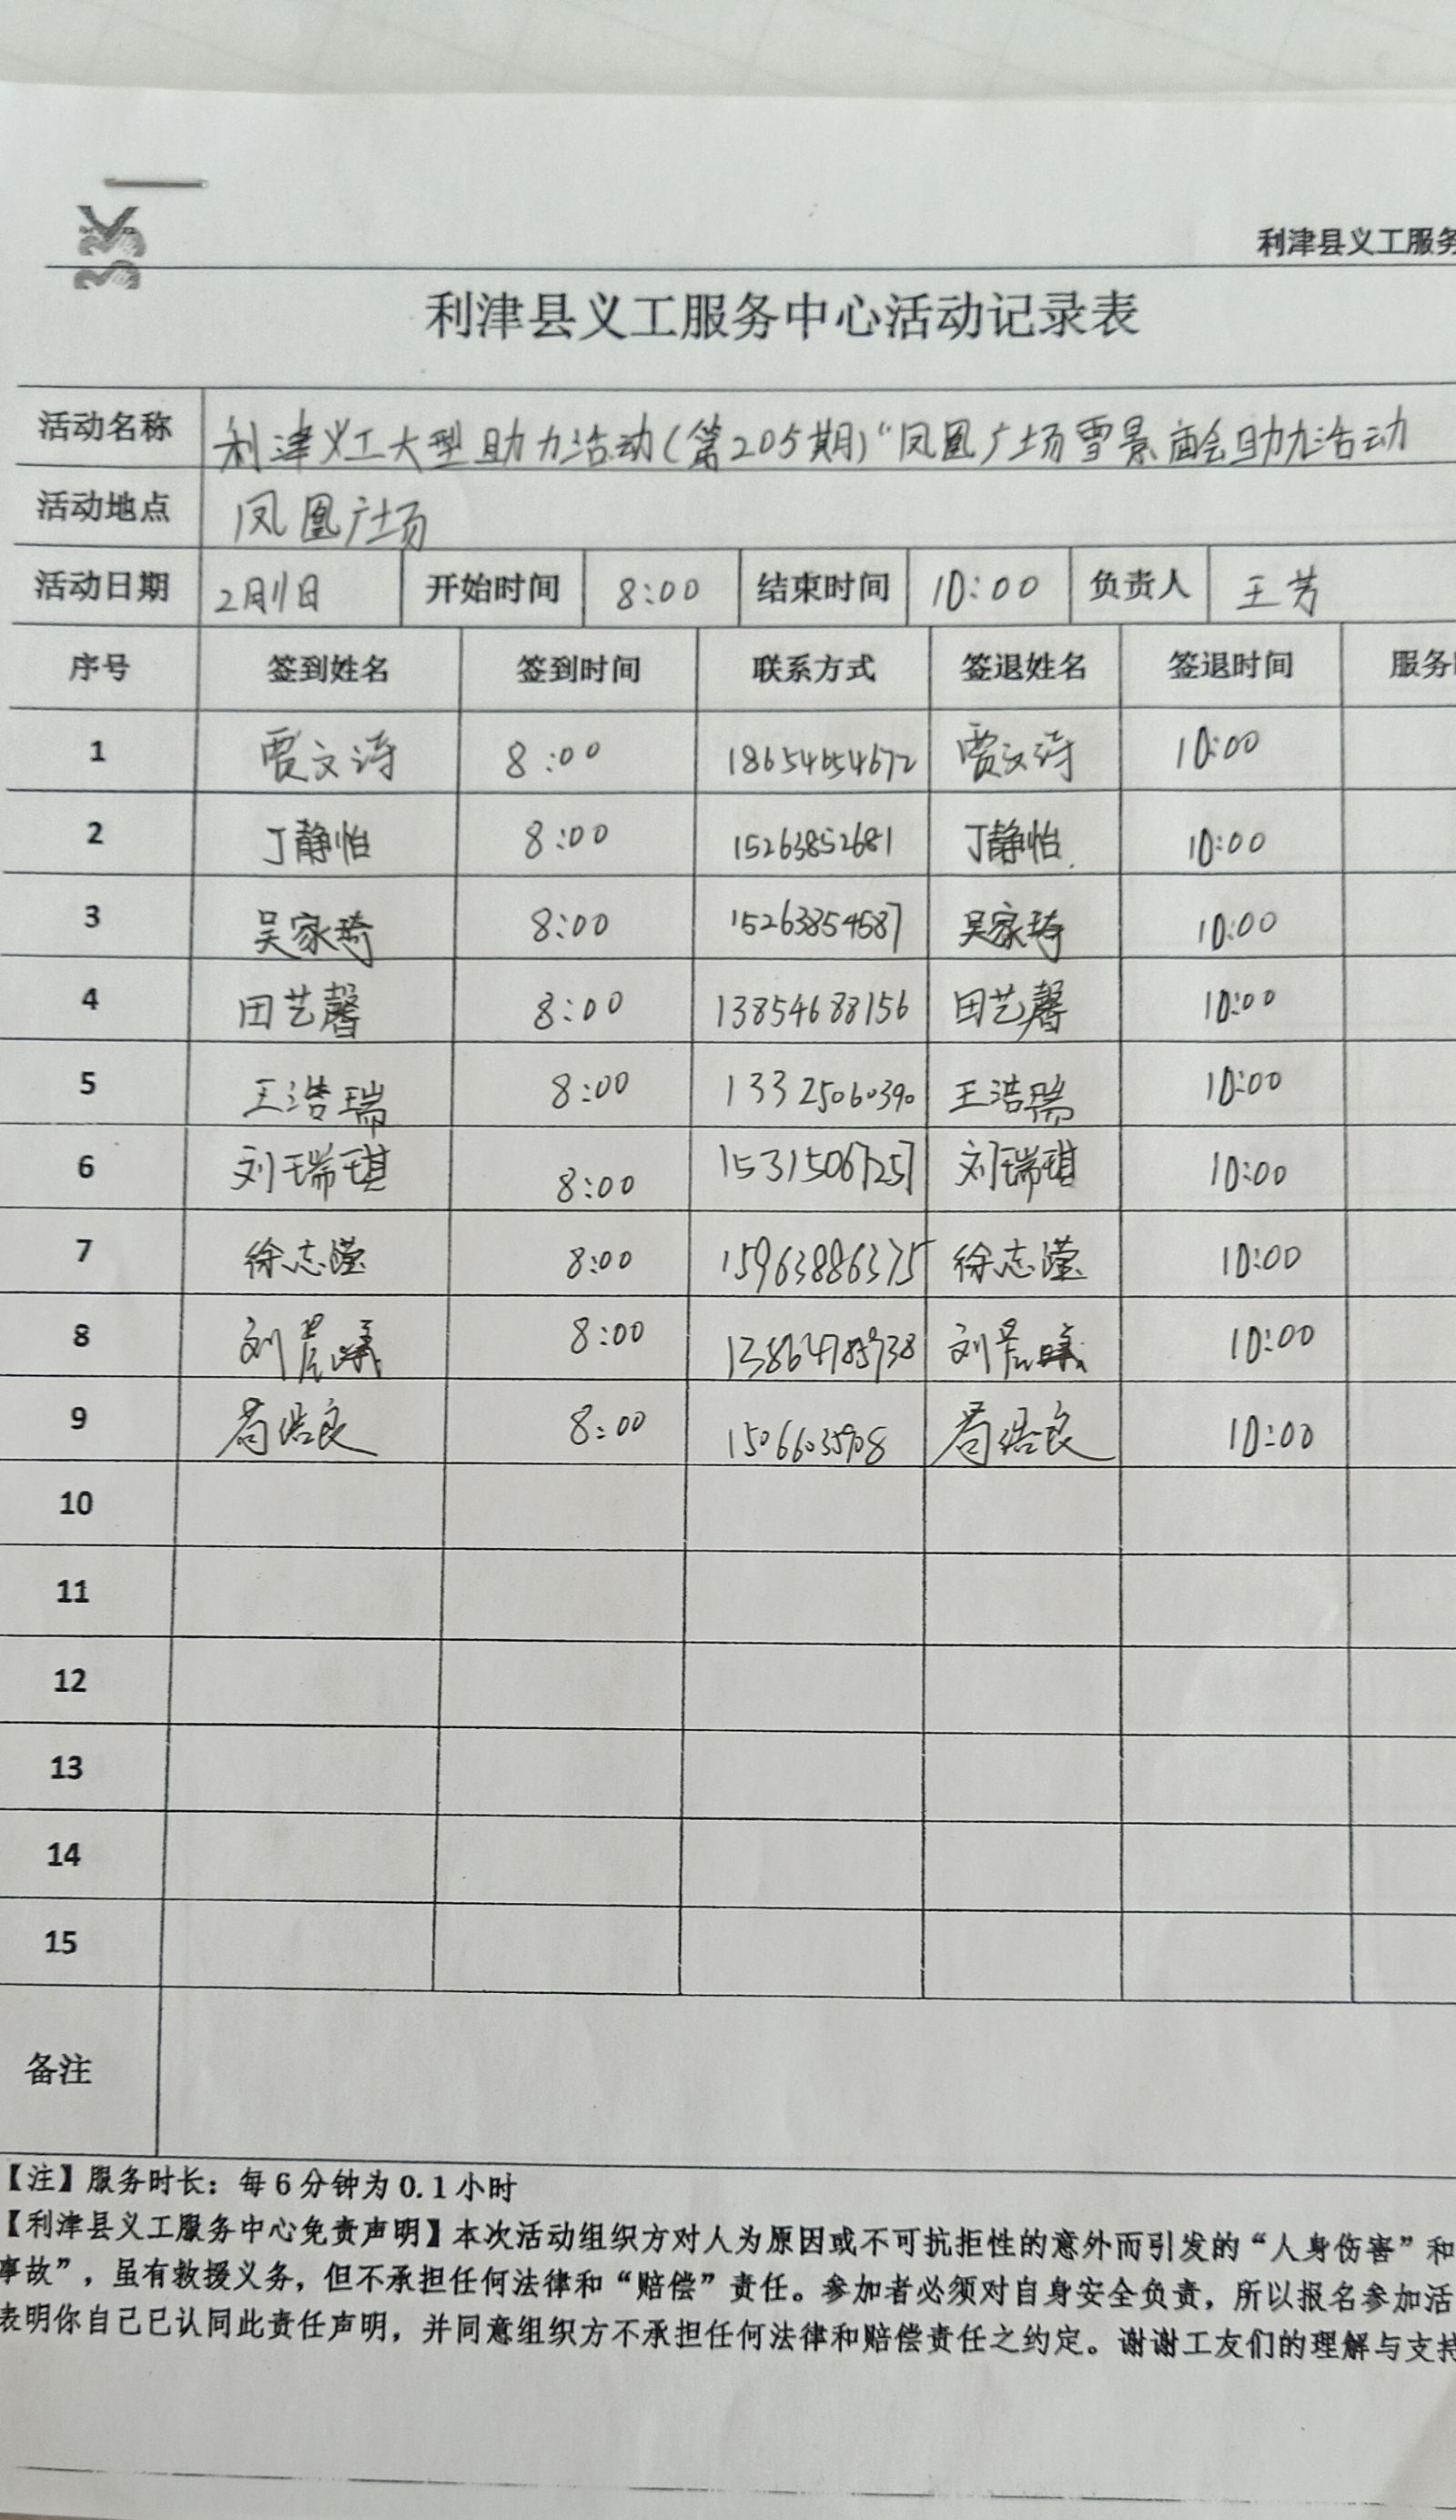 利津县义工服务
利津县义工服务中心活动记录表
活动名称 利津义工大型助力活动(第205期)“凤凰广场雪景庙会助力活动
活动地点 凤凰广场
活动日期 2月11日 开始时间 8:00 结束时间 10:00 负责人 王芳
序号 签到姓名 签到时间 联系方式 签退姓名 签退时间 服务
1 贾文诗 8:00 18654654672 贾文诗 10:00
2 丁静怡 8:00 15263852681 丁静怡 10:00
3 吴家琦 8:00 15263854587 吴家琦 10:00
4 田艺馨 8:00 13854688156 田艺馨 10:00
5 王浩瑞 8:00 13325060390 王浩瑞 10:00
6 刘瑞琪 8:00 15315067257 刘瑞琪 10:00
7 徐志滢 8:00 15963886375 徐志滢 10:00
8 刘晨曦 8:00 刘晨曦 10:00
9 8:00 10:00
10
11
12
13
14
15
备注
【注】服务时长：每6分钟为0.1小时
【利津县义工服务中心免责声明】本次活动组织方对人为原因或不可抗拒性的意外而引发的“人身伤害”和
事故”，虽有救援义务，但不承担任何法律和“赔偿”责任。参加者必须对自身安全负责，所以报名参加活
表明你自己已认同此责任声明，并同意组织方不承担任何法律和赔偿责任之约定。谢谢工友们的理解与支持